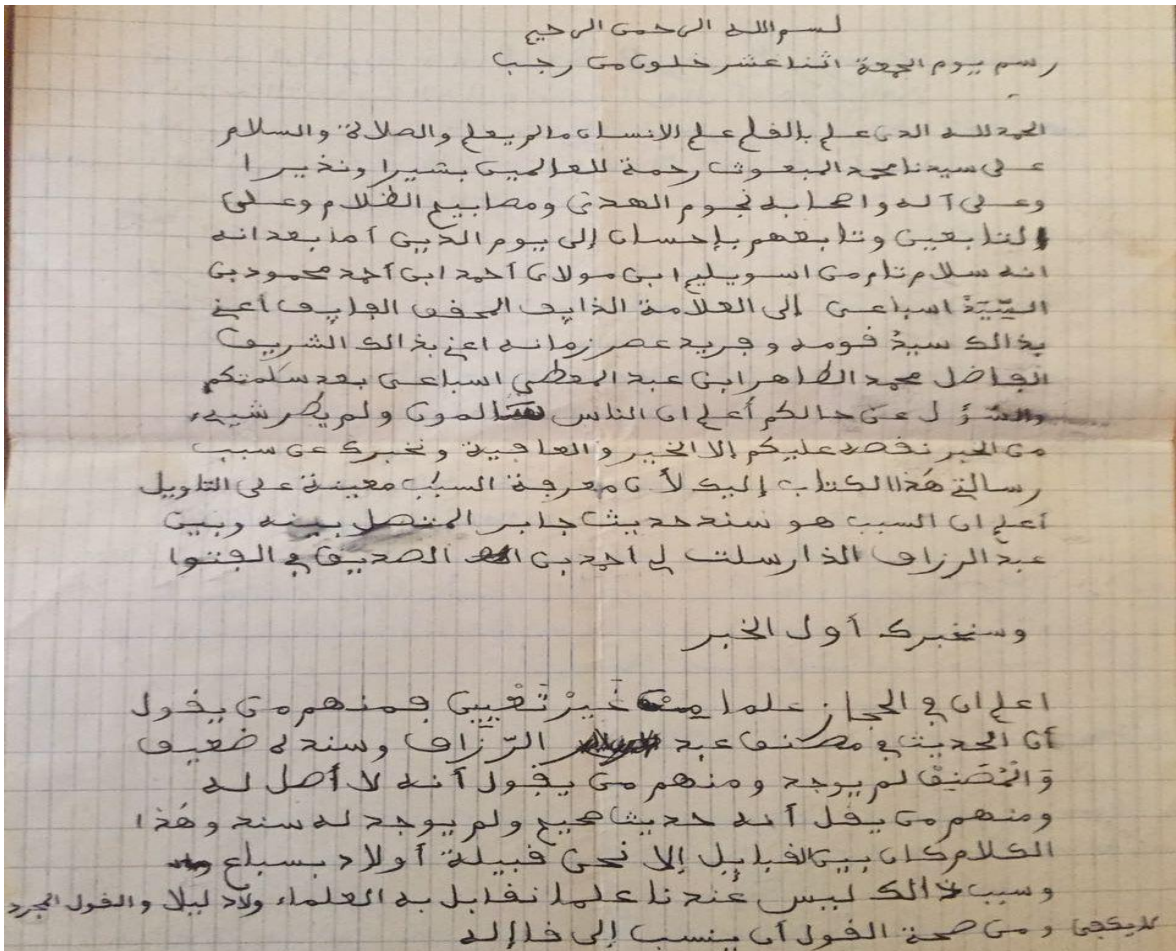 بسم الله الرحمن الرحيم
رسم يوم الجمعة اثنا عشر خلون من رجب
الحمد لله الذي علم بالقلم علم الانسان ما لم يعلم والصلاة والسلام
على سيدنا محمد المبعوث رحمة للعالمين بشيرا ونذيرا
وعلى آله واصحابه نجوم الهدى ومصابيح الظلام وعلى
التابعين وتابعهم بإحسان إلى يوم الدين أما بعد انه
انه سلام تام من اسويليم ابن مولاي أحمد ابن أحمد محمود بن
اسباعي إلى العلامة الذايق المحقق الفايق أعني
بذالك سيد قومه وفريد عصر زمانه اعني بذالك الشريف
الفاضل محمد الطاهر ابن عبد المعطي اسباعي بعد سلمتكم
والسؤل عن حالكم أعلم ان الناس سالمون ولم يطر شيء
من الخبر نقصه عليكم إلا الخير والعافية ونخبرك عن سبب
رسالتي هذا الكتاب إليك لأن معرفة السبب معينة على التلويل
أعلم ان السبب هو سند حديث جابر المتصل بينه وبين
عبد الرزاق الذ ارسلت لي احمد بن الصديق في الفتوا
وسنخبرك أول الخبر
اعلم ان في الحجاز علما من غير تعيين فمنهم من يقول
أن الحديث في مصنف عبد الرزاق وسنده ضعيف
والمصنف لم يوجد ومنهم من يقول أنه لا أصل له
ومنهم من يقل أنه حديث صحيح ولم يوجد له سند وهذا
الكلام كان بين القبايل إلا نحن قبيلة أولاد بسباع
وسبب ذالك ليس عندنا علما نقابل به العلماء ولاد ليلا والقول المجرد
لا يكفي ومن صحة القول أن ينسب إلى قاإله